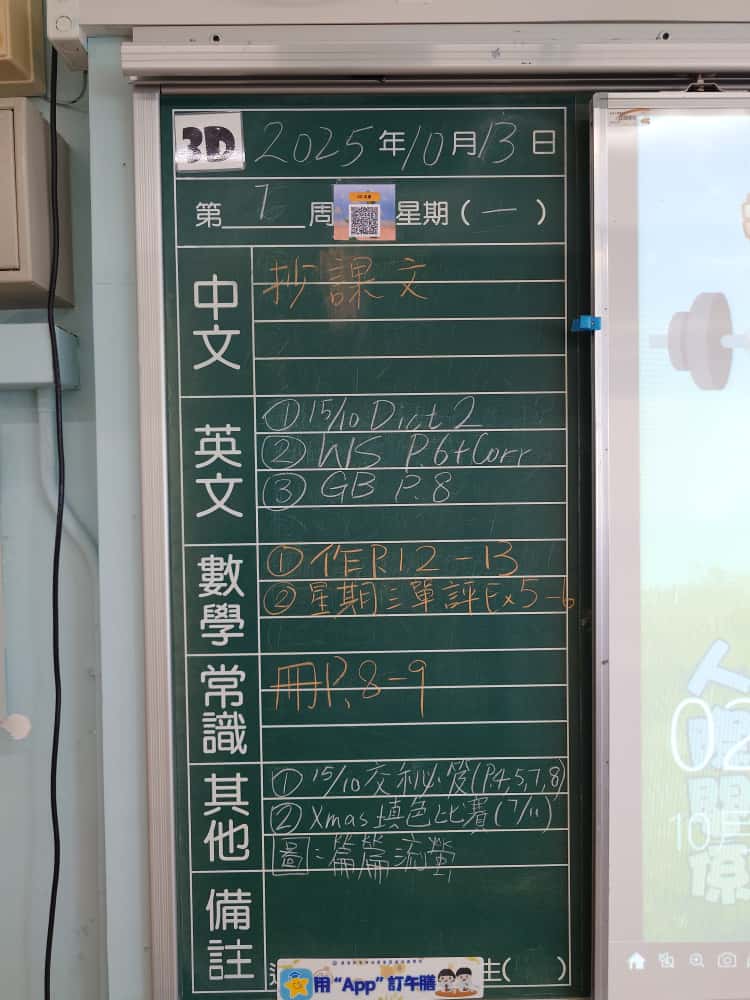 3D 2025年10月13日
第 7 周 星期(一)
中文
抄課文
英文
① 15/10 Dict 2
② WS P.6+Corr
③ GB P.8
數學
① 作P.12-13
② 星期三單評Ex5-6
常識
冊P.8-9
其他
① 15/10交利必筏(P.4,5,7,8)
② Xmas填色比賽(7/11)
圖:篇篇流螢
備註
生( )
用“App”訂午膳
人際關係
02
10月